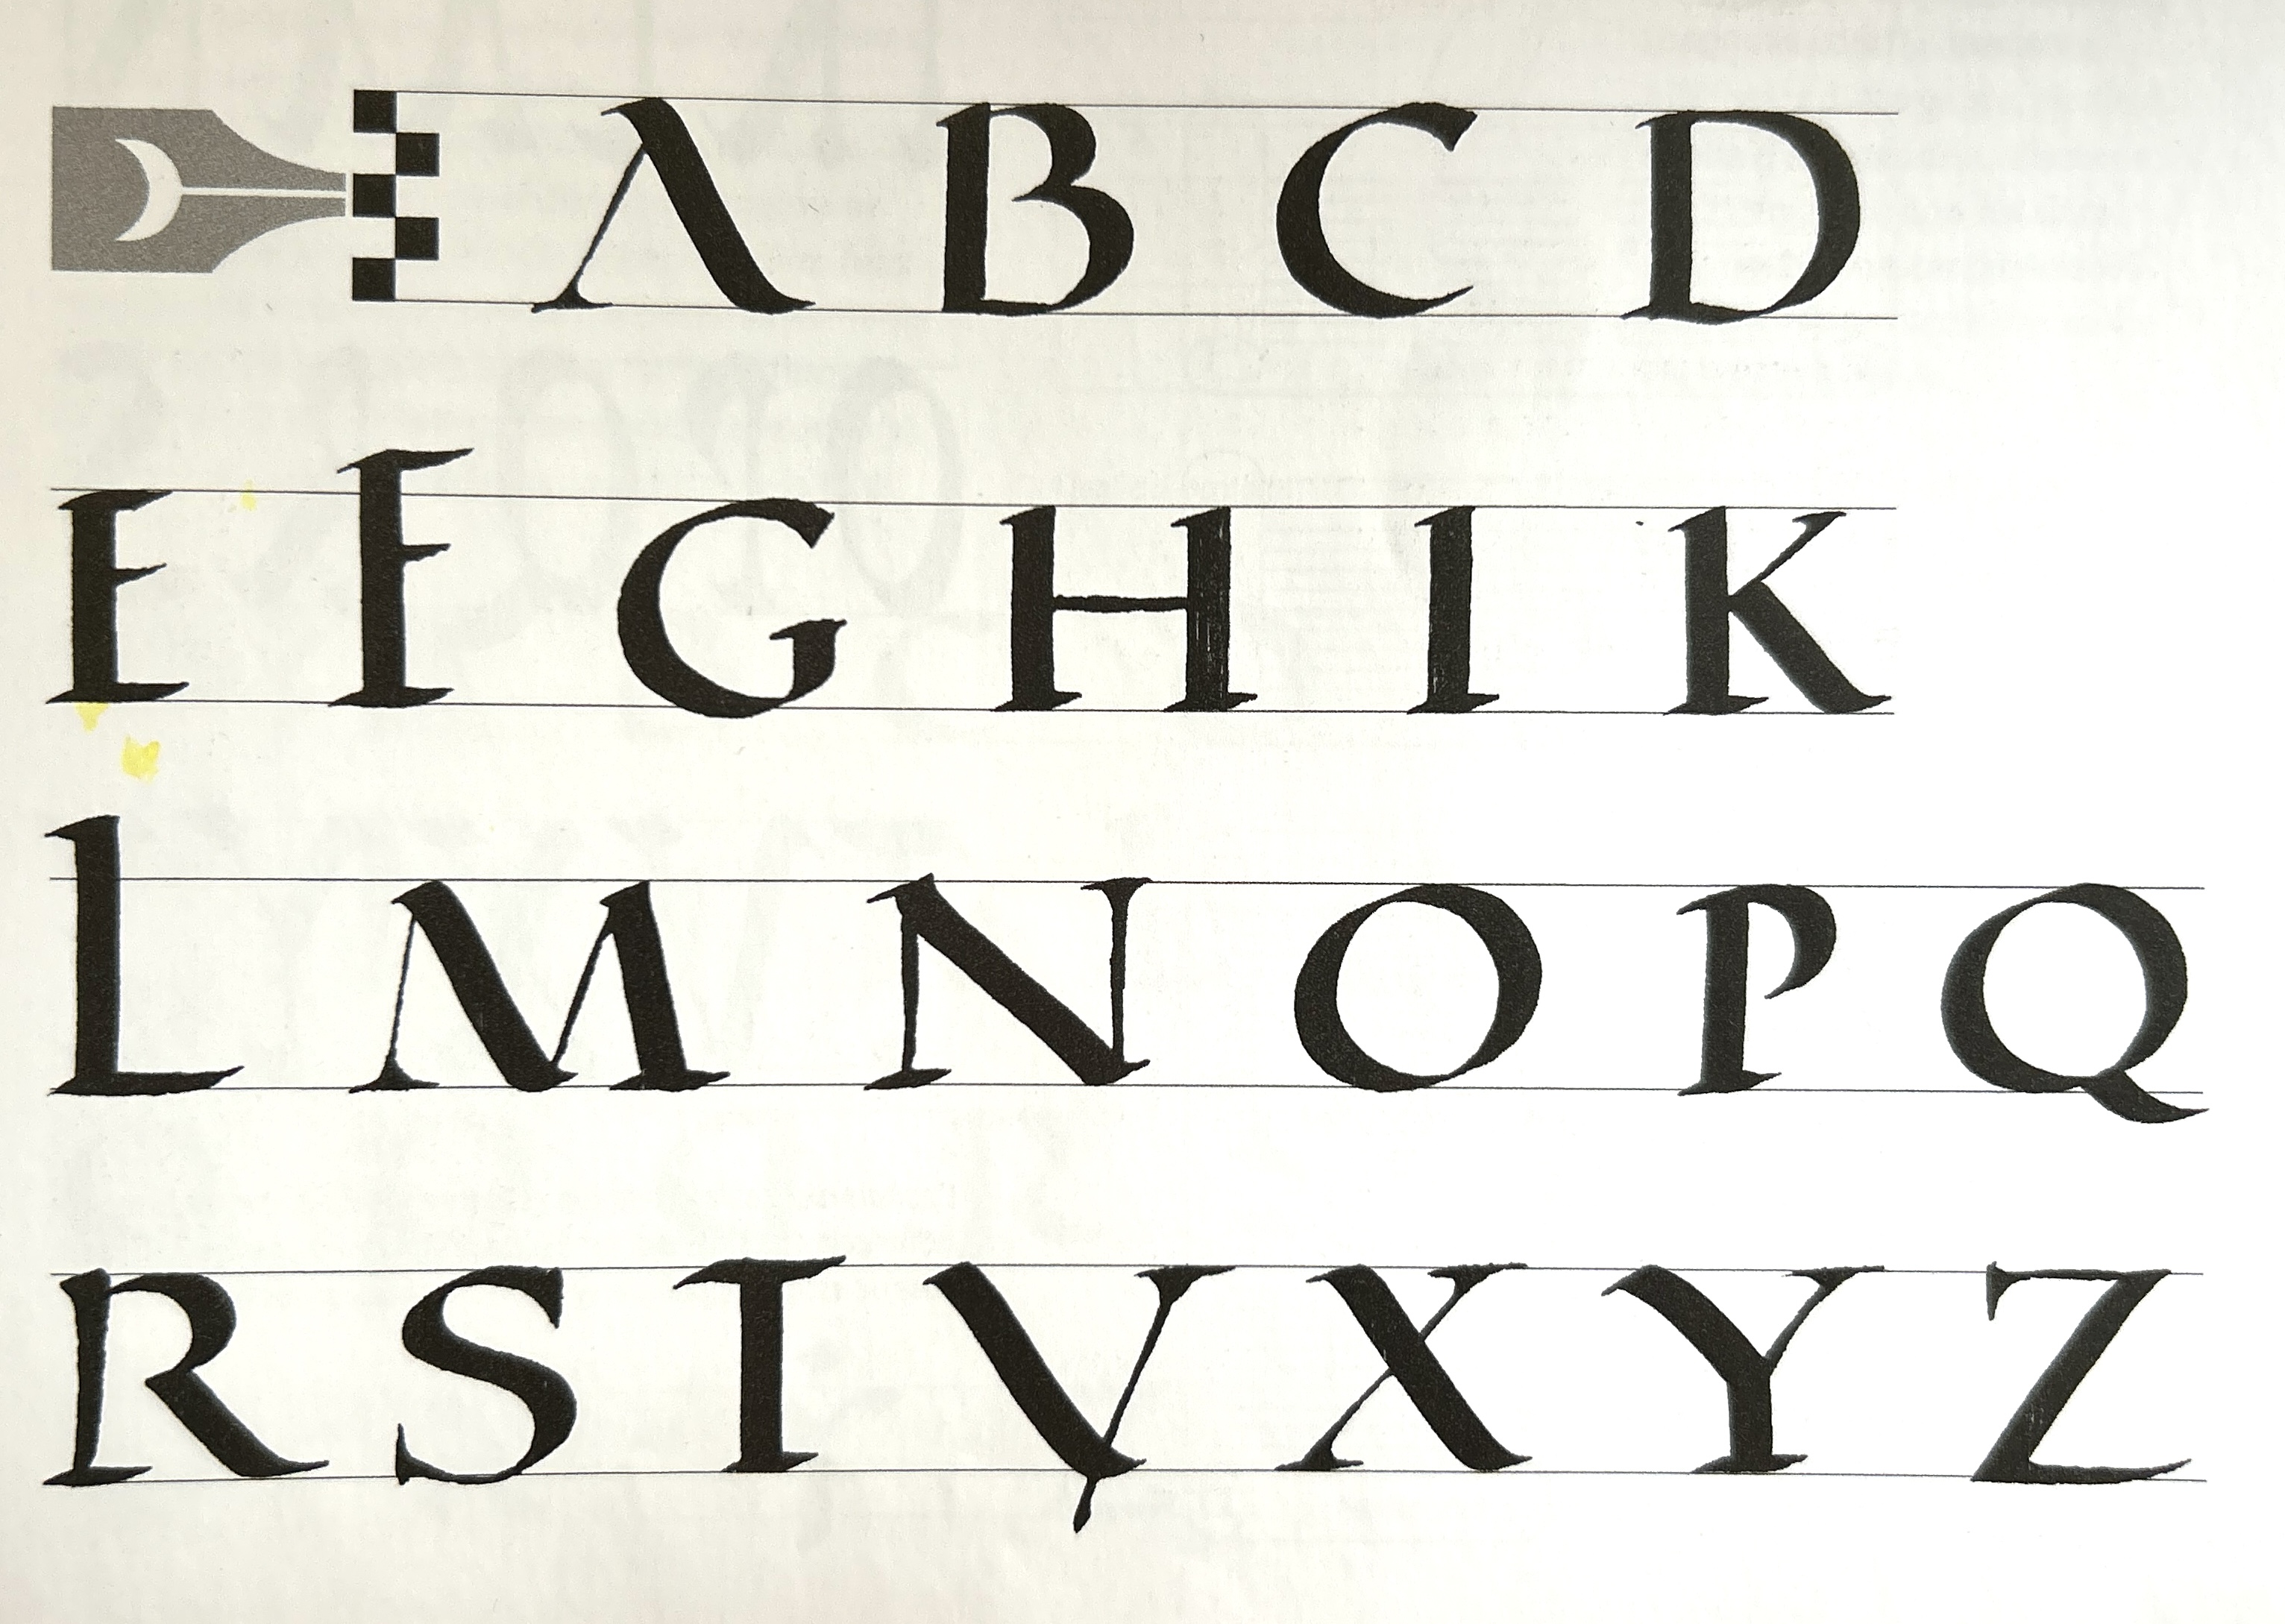 A B C D
E F G H I K
L M N O P Q
R S T V X Y Z